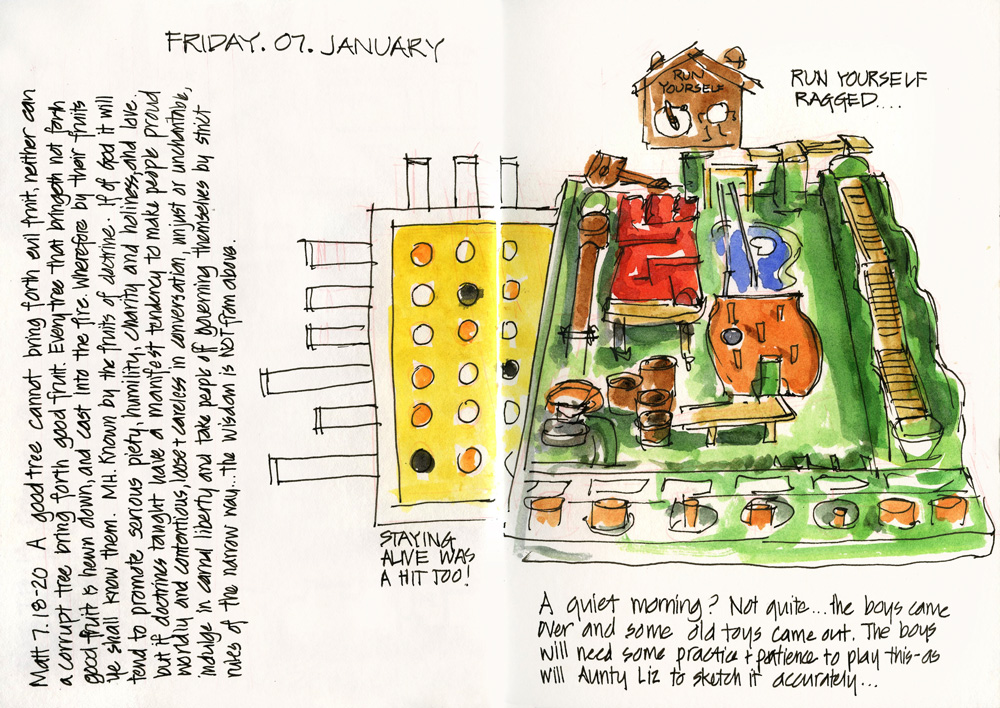 FRIDAY. 07. JANUARY
Matt 7.18-20 A good tree cannot bring forth evil fruit, neither can
a corrupt tree bring forth good fruit. Every tree that bringeth not forth
good fruit is hewn down, and cast into the fire. Wherefore by their fruits
ye shall know them. MH. Known by the fruits of doctrine. If of God it will
tend to promote serious piety, humility, charity and holiness, and love.
but if doctrines taught have a manifest tendency to make people proud
worldly and contentious, loose + careless in conversation, unjust or uncharitable,
indulge in carnal liberty and take people off governing themselves by strict
rules of the narrow way... the wisdom is NOT from above.
RUN
YOURSELF
RUN YOURSELF
RAGGED....
STAYING
ALIVE WAS
A HIT TOO!
A quiet morning? Not quite...the boys came
over and some old toys came out. The boys
will need some practice + patience to play this - as
will Aunty Liz to sketch it accurately...